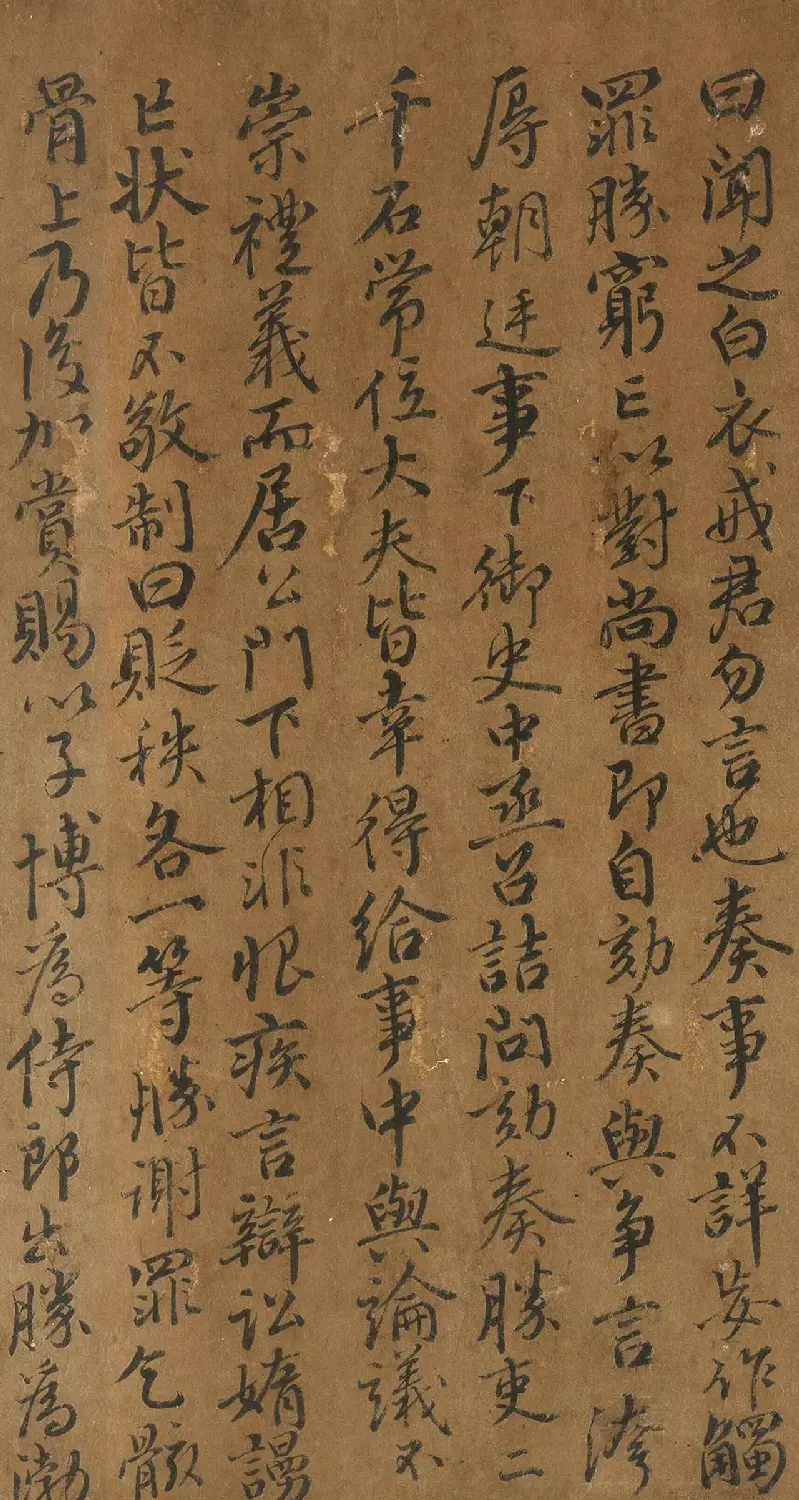 曰聞之白衣戒君勿言也奏事不詳妄作觸
罪勝窮亡以對尚書即自劾奏與爭言洿
辱朝廷事下御史中丞召詰問劾奏勝吏二
千石常位大夫皆幸得給事中與論議不
崇禮義而居公門下相非恨疾言辯訟媠謾
亡狀皆不敬制曰貶秩各一等勝謝罪乞骸
骨上乃復加賞賜以子博為侍郎出勝為渤